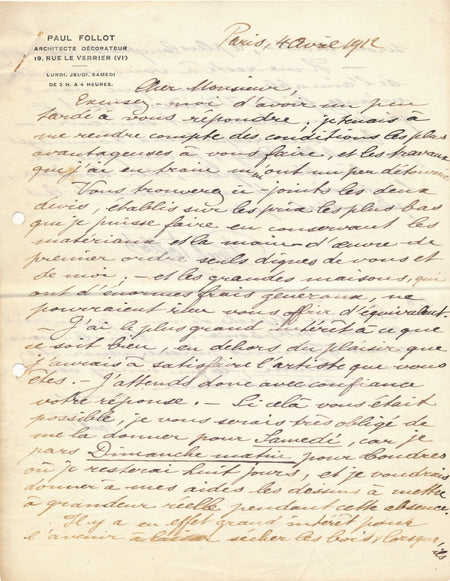 PAUL FOLLOT
ARCHITECTE DÉCORATEUR
19, RUE LE VERRIER (VI)
LUNDI, JEUDI, SAMEDI
DE 2 H. A 4 HEURES.
Paris, 4 avril 1912
Cher Monsieur,
Excusez-moi d'avoir un peu
tardé à vous répondre, je tenais à
me rendre compte des conditions les plus
avantageuses à vous faire, et les travaux
que j'ai en train m'ont un peu détourné
Vous trouverez ci-joints les deux
devis, établis sur les prix les plus bas
que je puisse faire en conservant les
matériaux et la main-d'œuvre de
premier ordre seuls dignes de vous et
de moi, - et les grandes maisons, qui
ont d'énormes frais généraux, ne
pourraient vous offrir d'équivalent.
- J'ai le plus grand intérêt à ce que
ce soit bien, en dehors du plaisir que
j'aurais à satisfaire l'artiste que vous
êtes. - J'attends donc avec confiance
votre réponse. - Si celà vous était
possible, je vous serais très obligé de
me la donner pour Samedi, car je
pars Dimanche matin pour Londres
où je resterai huit jours, et je voudrais
donner à mes aides les dessins à mettre
à grandeur réelle pendant cette absence.
Il y a en effet grand intérêt pour
l'avenir à laisser sécher les bois, lorsqu'ils